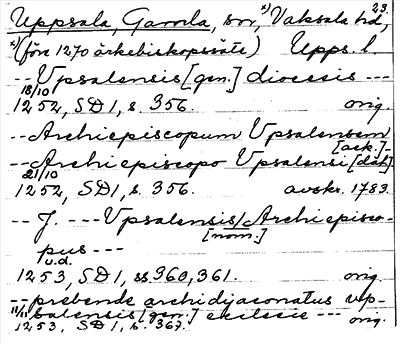 23.
Uppsala, Gamla, sn, x) Vaksala hd,
x) (före 1270 ärkebiskopssäte) Upps. l
-- Vpsalensis [gen.] diocesis ---
18/10
1252, SD 1, s. 356. orig.
-- Archiepiscopum Vpsalensem
[ack.] -
-- Archiepiscopo Vpsalensi [dat.]
21/10
1252, SD 1, s. 356. avskr. 1783.
-- J. --- Vpsalensis / Archiepisco-
[nom.]
pus ---
u.d.
1253, SD 1, ss 360, 361. orig.
-- prebende archidyaconatus vp-
salensis [gen.] ecclesie ---
11/11
1253, SD 1, s. 367. orig.